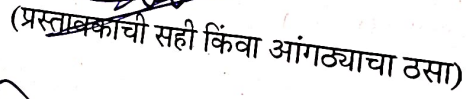 (प्रस्तावकाची सही किंवा आंगठ्याचा ठसा)